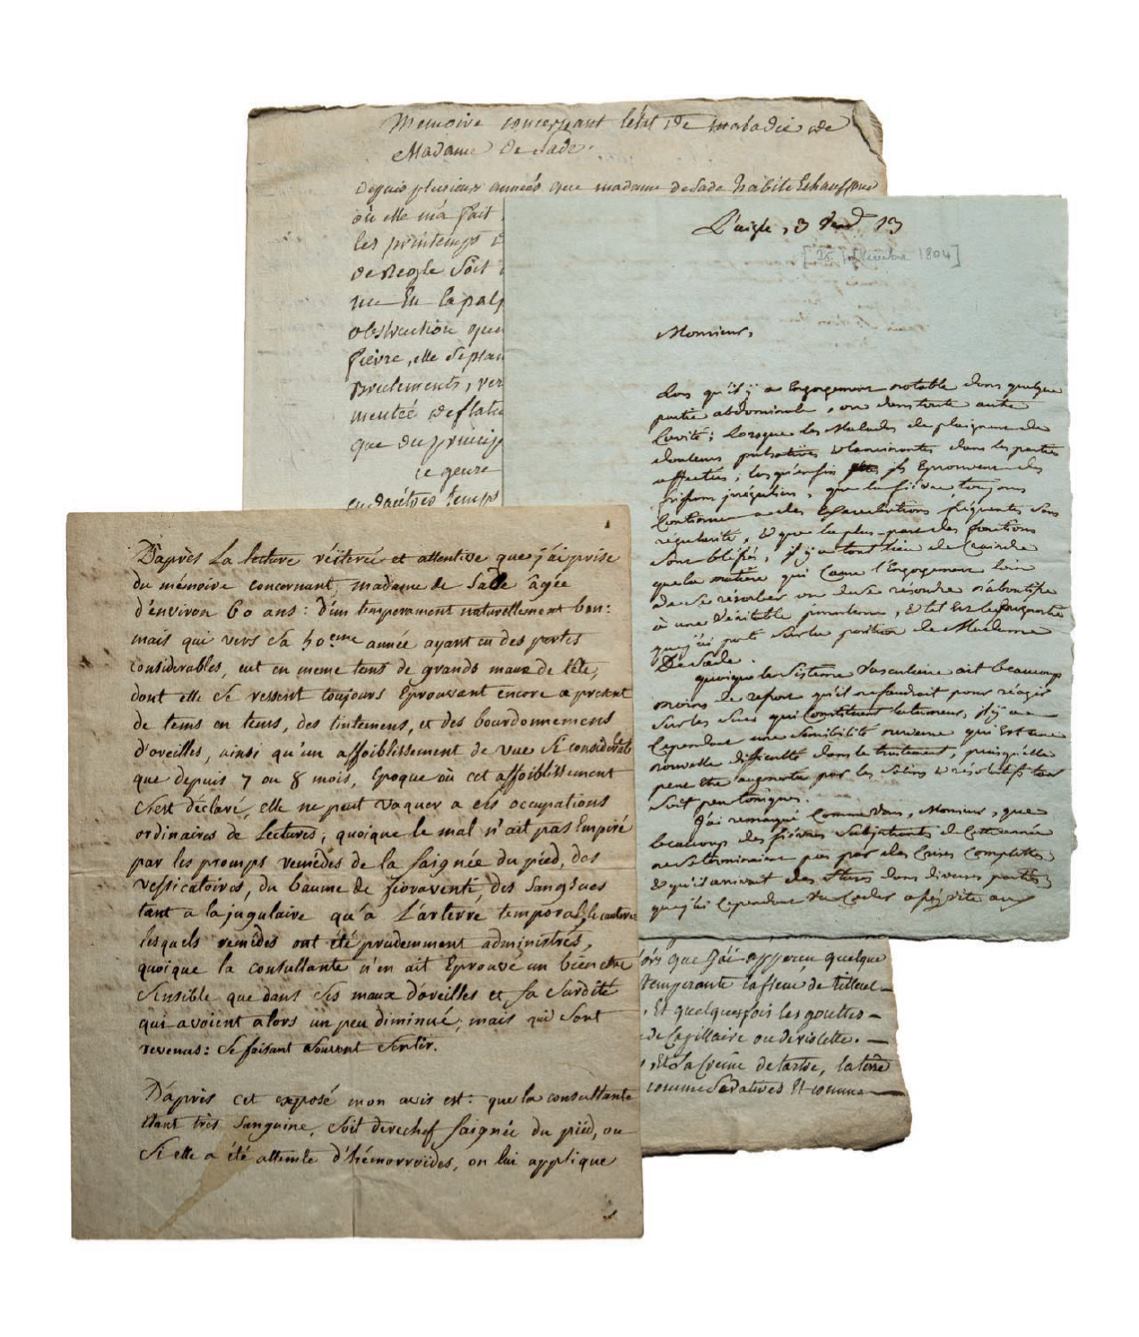 Memoire concernant letat de maladie de
Madame de Sade.
Depuis plusieurs années que madame de Sade habite Echauffour
où elle m'a fait
les printemps
de Regle soit
rue En la palp
obstruction que
fievre, elle se plain
que du princip
ce genre
en d'autres temps
L'aigle, 3 Vend. 13
[25 septembre 1804]
Monsieur,
Lors qu'il y a Engorgement notable dans quelque
partie abdominale, ou dans toute autre
Cavité; lorsque les Malades se plaignent de
douleurs pulsatives & lancinantes dans les parties
affectées; lorsqu'enfin ils Eprouvent des
frissons irréguliers, que la fièvre toujours
Continue a des Exacerbations fréquentes sans
régularité, & que la plus part des fonctions
sont blésées, il y a tout lieu de Craindre
que la matière qui Cause l'Engorgement loin
de se résorber ou de se résoudre n'aboutisse
à une Véritable purulence, & tel est le
que j'ai porté sur la position de Madame
De Sade.
quoique le Sistème Vasculaire ait beaucoup
moins de ressort qu'il ne faudrait pour réagir
sur les sucs qui Constituent la tumeur, il y a
Cependant une sensibilité nerveuse qui Est une
nouvelle difficulté dans le traitement, puisqu'elle
peut être augmentée par les & résolutifs tant
soit peu toniques.
J'ai remarqué Comme Vous, Monsieur, que
beaucoup des fièvres de Cette année
ne se terminaient pas par des Crises Complettes,
& qu'il arrivait des dans diverses parties,
que j'ai Cependant Vu Céder assez vite aux
D'après La lecture réiterée et attentive que j'ai prise
du mémoire concernant madame de Sade âgée
d'environ 60 ans: d'un temperament naturellement bon:
mais qui vers sa 50eme année ayant eu des pertes
considerables, eut en meme tems de grands maux de tête,
dont elle se ressent toujours Eprouvant encore a present
de tems en tems, des tintemens, et des bourdonnemens
d'oreilles, ainsi qu'un affoiblissement de vue si considerable
que depuis 7 ou 8 mois, Epoque où cet affoiblissement
s'est déclaré, elle ne peut vaquer a ses occupations
ordinaires de Lectures, quoique le mal n'ait pas Empiré
par les promps remédes de la saignée du pied, des
vessicatoires, du bâume de fioraventi, des Sangsues
tant a la jugulaire qu'a L'arterre temporale,
lesquels remédes ont été prudemment administrés,
quoique la consultante n'en ait Eprouvé un bien etre
Sensible que dans ses maux d'oreilles et sa Surdité
qui avoient alors un peu diminué, mais qui sont
revenus: se faisant souvent sentir.
D'aprés cet exposé mon avis est: que la consultante
étant très sanguine, soit derechef saignée du pied, ou
si elle a été atteinte d'hémorroïdes, on lui applique
lors que j'ai apperçu quelque
temperante la fleur de tilleul
, Et quelquefois les gouttes
de Capillaire ou de violette.
, Et la Crême de tartre, la terre
comme Sedatives Et comme